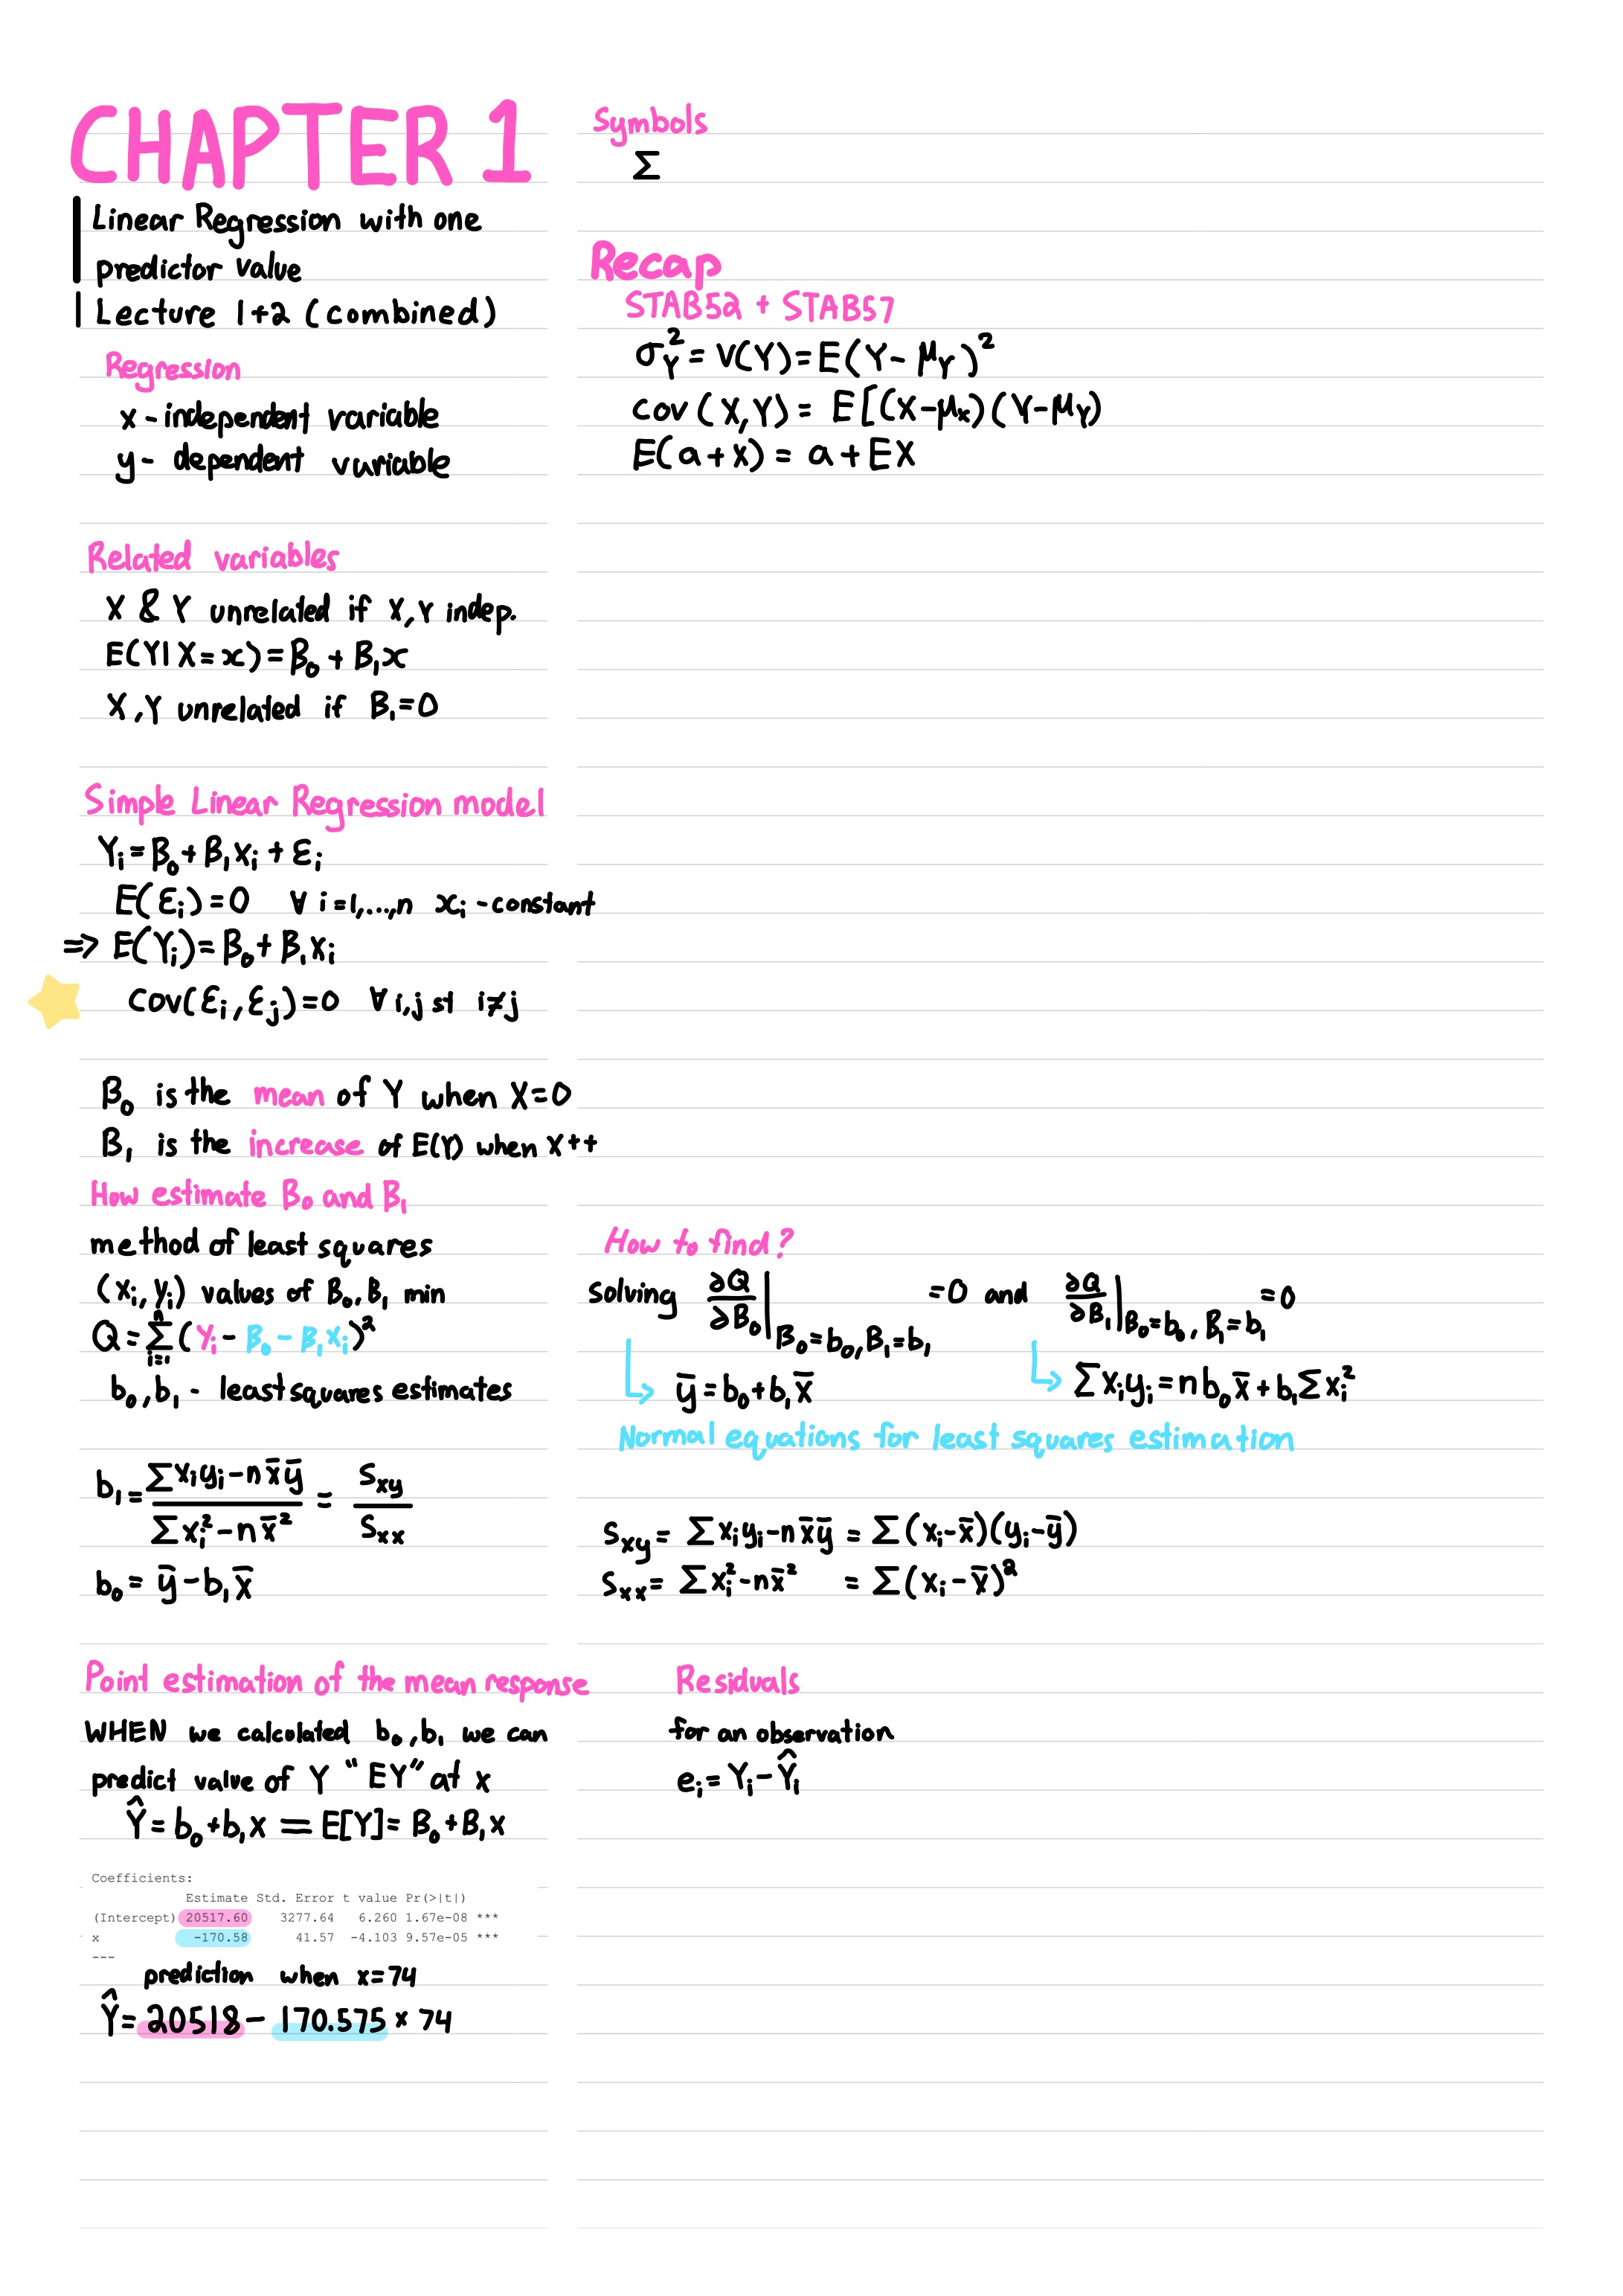 CHAPTER 1
Linear Regression with one
predictor value
Lecture 1+2 (combined)
Regression
x - independent variable
y - dependent variable
Related variables
X & Y unrelated if X,Y indep.
E(Y|X=x)=B₀+B₁x
X,Y unrelated if B₁=0
Simple Linear Regression model
Yᵢ=B₀+B₁xᵢ+εᵢ
E(εᵢ)=0 ∀ i=1,...,n xᵢ - constant
⇒ E(Yᵢ)=B₀+B₁xᵢ
cov(εᵢ,εⱼ)=0 ∀ i,j st i≠j
B₀ is the mean of Y when X=0
B₁ is the increase of E(Y) when X++
How estimate B₀ and B₁
method of least squares
(xᵢ,yᵢ) values of B₀,B₁ min
Q=Σᵢ₌₁ⁿ(Yᵢ-B₀-B₁xᵢ)²
b₀,b₁ - least squares estimates
b₁=(Σxᵢyᵢ-nx̄ȳ)/(Σxᵢ²-nx̄²)=Sxy/Sxx
b₀=ȳ-b₁x̄
Point estimation of the mean response
WHEN we calculated b₀,b₁ we can
predict value of Y "EY" at x
Ŷ=b₀+b₁x=E[Y]=B₀+B₁x
Coefficients:
Estimate Std. Error t value Pr(>|t|)
(Intercept) 20517.60 3277.64 6.260 1.67e-08 ***
x -170.58 41.57 -4.103 9.57e-05 ***
---
prediction when x=74
Ŷ=20518-170.575×74
Symbols
Σ
Recap
STAB52 + STAB57
σ²_Y=V(Y)=E(Y-μ_Y)²
cov(X,Y)=E[(X-μₓ)(Y-μ_Y)
E(a+X)=a+EX
How to find?
solving ∂Q/∂B₀|B₀=b₀,B₁=b₁ =0 and ∂Q/∂B₁|B₀=b₀,B₁=b₁ =0
↳ ȳ=b₀+b₁x̄ ↳ Σxᵢyᵢ=nb₀x̄+b₁Σxᵢ²
Normal equations for least squares estimation
Sxy=Σxᵢyᵢ-nx̄ȳ=Σ(xᵢ-x̄)(yᵢ-ȳ)
Sxx=Σxᵢ²-nx̄²=Σ(xᵢ-x̄)²
Residuals
for an observation
eᵢ=Yᵢ-Ŷᵢ